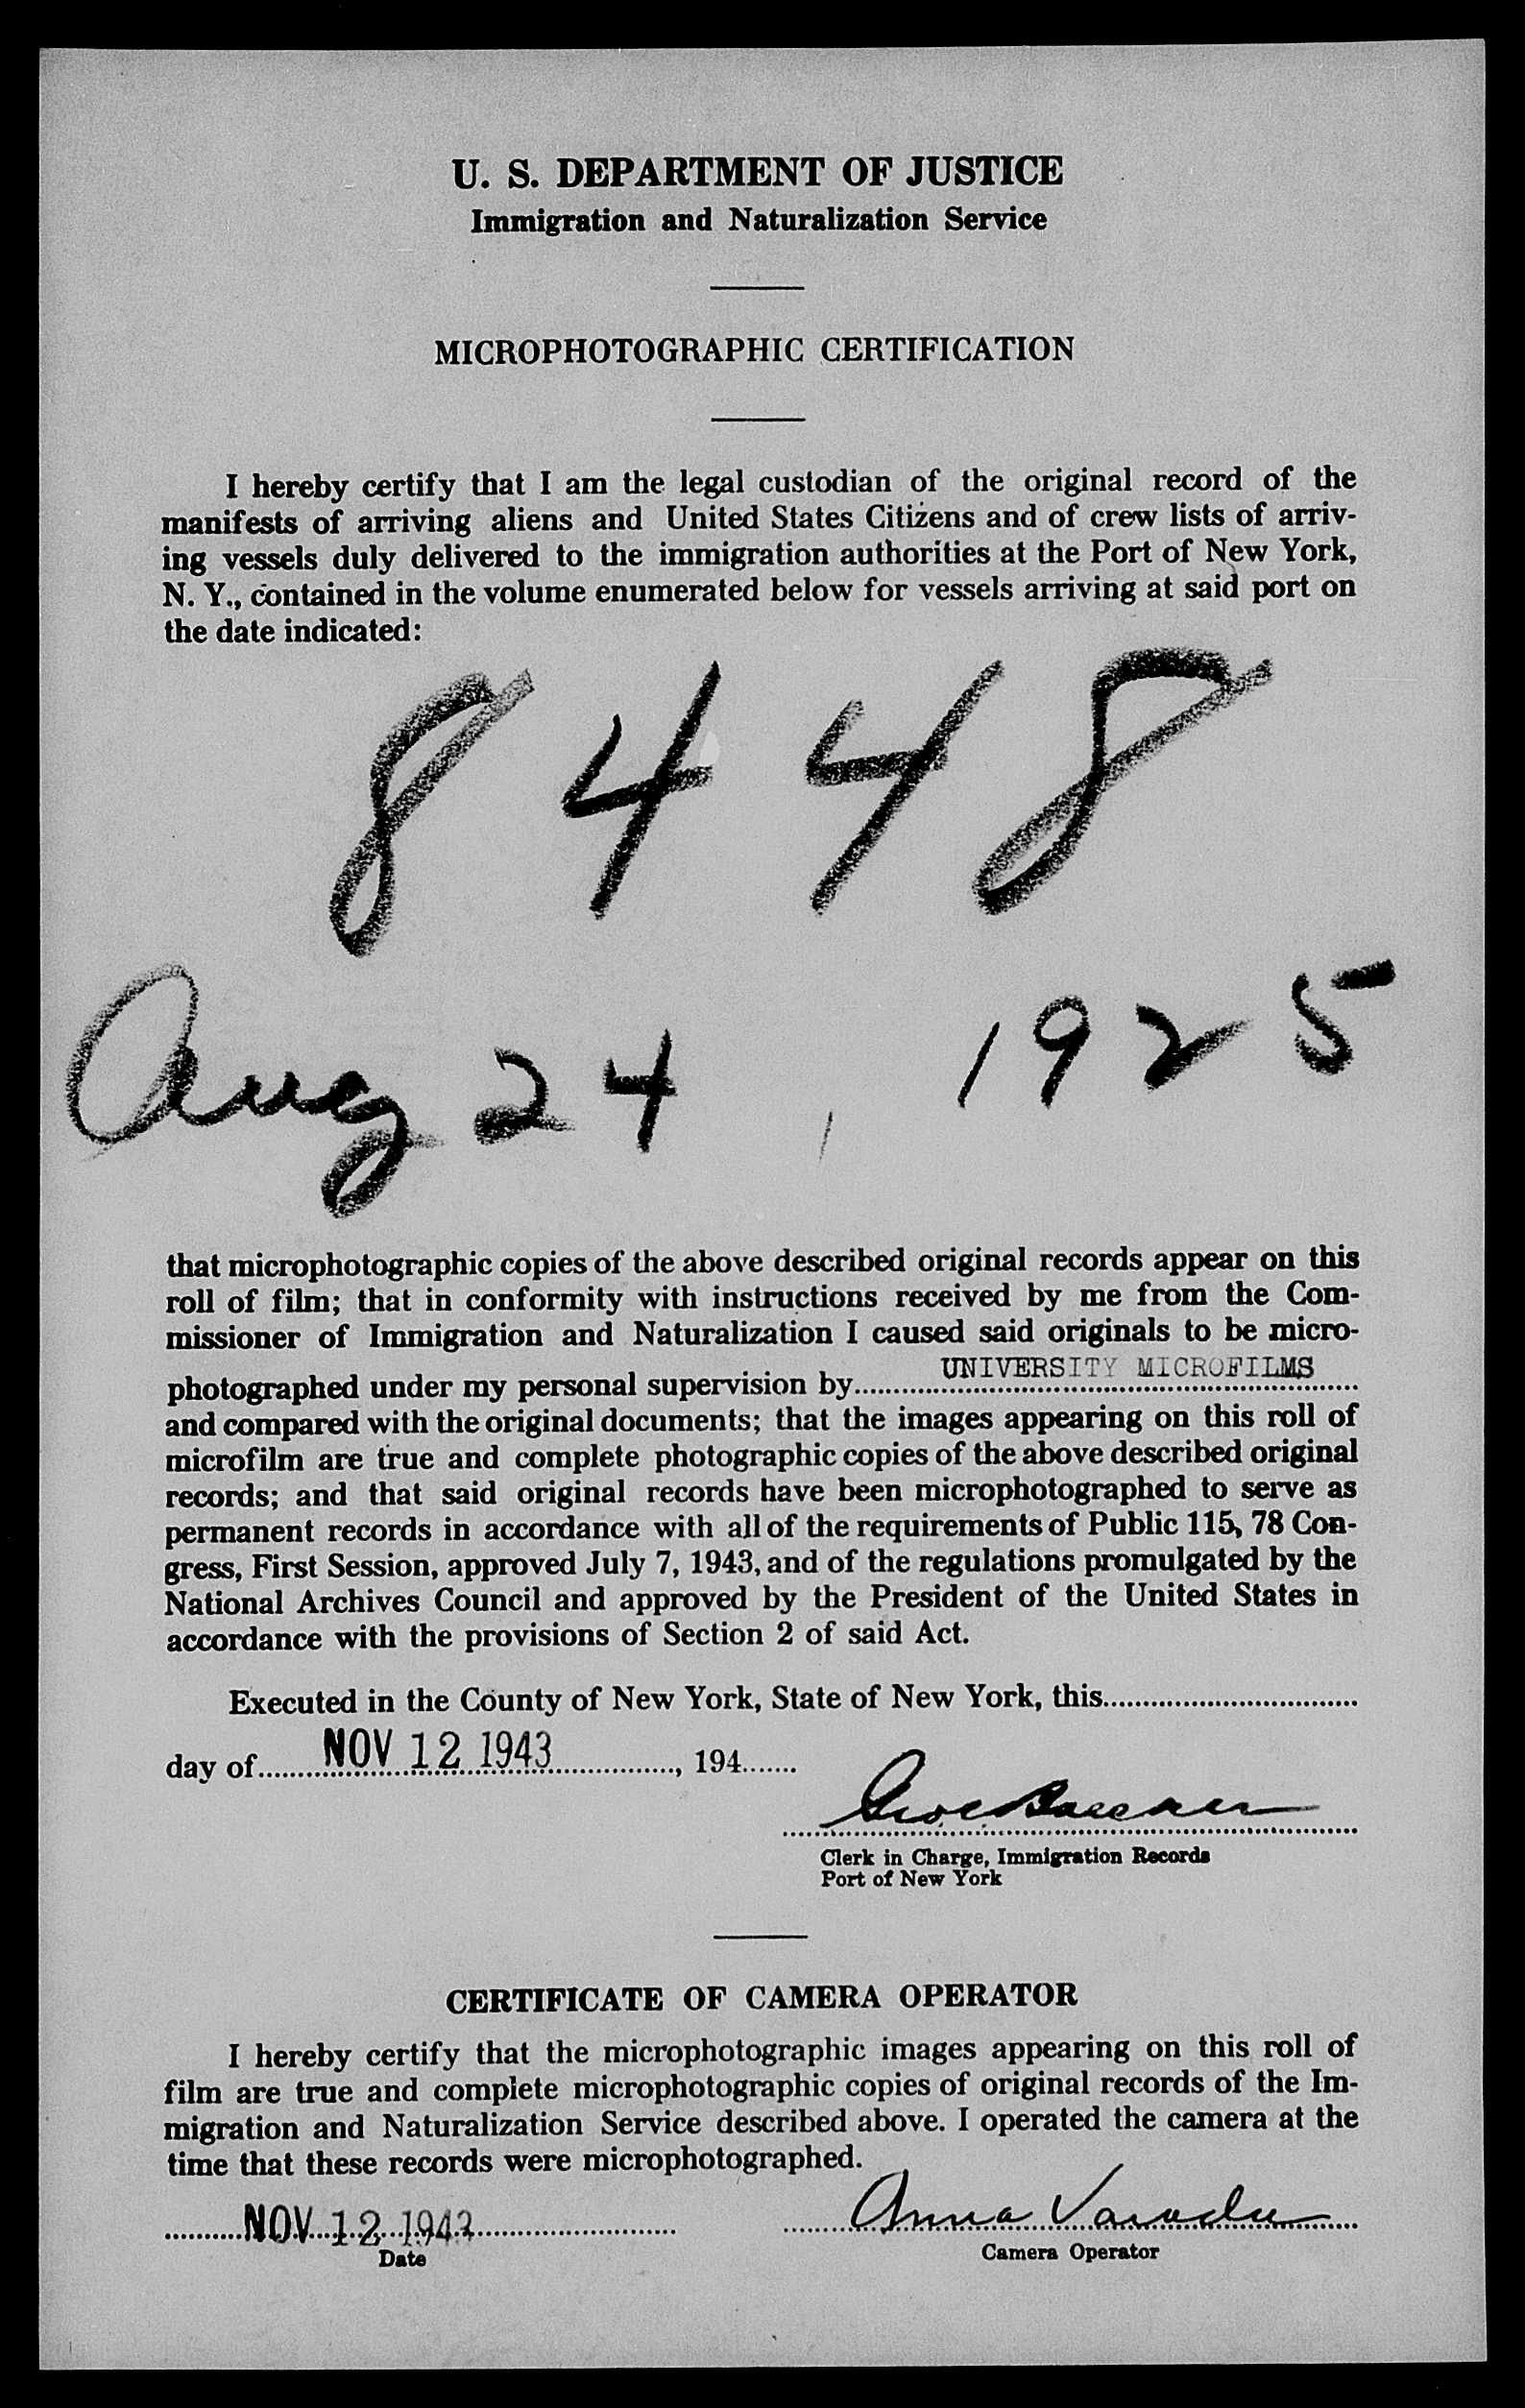 U. S. DEPARTMENT OF JUSTICE
Immigration and Naturalization Service
MICROPHOTOGRAPHIC CERTIFICATION
I hereby certify that I am the legal custodian of the original record of the
manifests of arriving aliens and United States Citizens and of crew lists of arriv-
ing vessels duly delivered to the immigration authorities at the Port of New York,
N. Y., contained in the volume enumerated below for vessels arriving at said port on
the date indicated:
8448
Aug 24, 1925
that microphotographic copies of the above described original records appear on this
roll of film; that in conformity with instructions received by me from the Com-
missioner of Immigration and Naturalization I caused said originals to be micro-
photographed under my personal supervision by UNIVERSITY MICROFILMS
and compared with the original documents; that the images appearing on this roll of
microfilm are true and complete photographic copies of the above described original
records; and that said original records have been microphotographed to serve as
permanent records in accordance with all of the requirements of Public 115, 78 Con-
gress, First Session, approved July 7, 1943, and of the regulations promulgated by the
National Archives Council and approved by the President of the United States in
accordance with the provisions of Section 2 of said Act.
Executed in the County of New York, State of New York, this
day of NOV 12 1943, 194
Clerk in Charge, Immigration Records
Port of New York
CERTIFICATE OF CAMERA OPERATOR
I hereby certify that the microphotographic images appearing on this roll of
film are true and complete microphotographic copies of original records of the Im-
migration and Naturalization Service described above. I operated the camera at the
time that these records were microphotographed.
NOV 12 1943 Anna
Date
Camera Operator